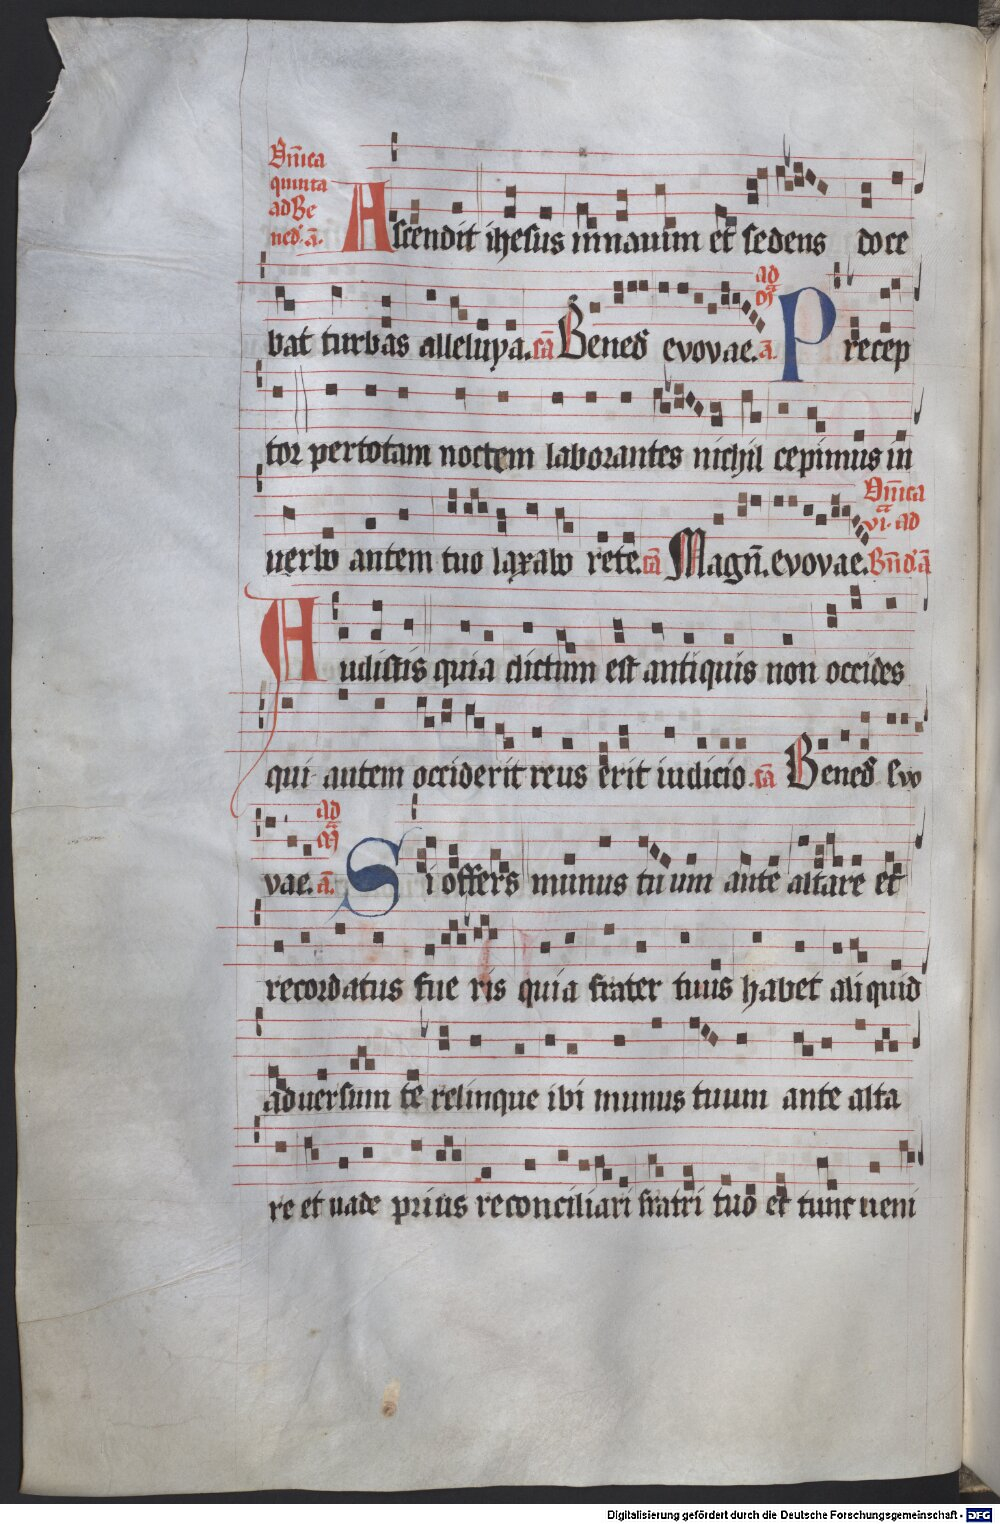 Dñica
quinta
ad Be
ned᷎. ā.
Ascendit ihesus in nauim et sedens doce
bat turbas alleluya. cā Bened᷎ evovae. ad m̄ ā. Precep
tor per totam noctem laborantes nichil cepimus in
uerbo autem tuo laxabo rete. cā Magn̄. evovae. Dñica vi. ad Bn̄d᷎. ā
Audistis quia dictum est antiquis non occides
qui autem occiderit reus erit iudicio. cā Bened᷎ Evo
vae. ad m̄ ā. Si offers munus tuum ante altare et
recordatus fue ris quia frater tuus habet aliquid
aduersum te relinque ibi munus tuum ante alta
re et uade prius reconciliari fratri tuo et tunc ueni
Digitalisierung gefördert durch die Deutsche Forschungsgemeinschaft - DFG